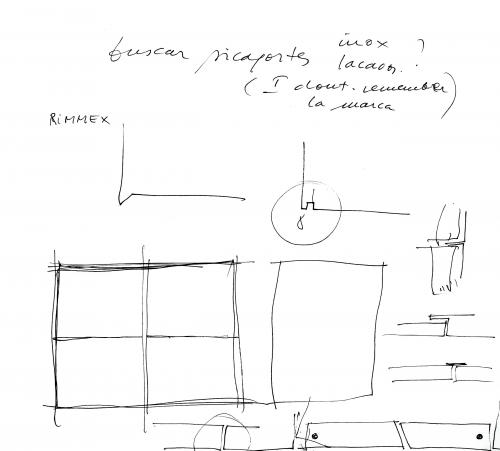 buscar picaportes inox ?
lacados.?
(I dont. remember
la marca)
RiMMEX